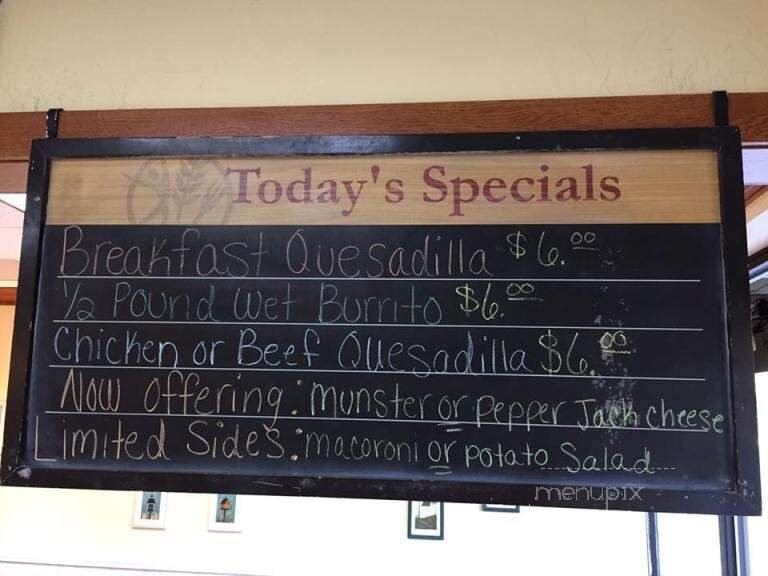 Today's Specials
Breakfast Quesadilla $6.00
1/2 Pound Wet Burrito $6.00
Chicken or Beef Quesadilla $6.00
Now Offering: munster or pepper Jack cheese
Limited Sides: macaroni or potato Salad
menupix